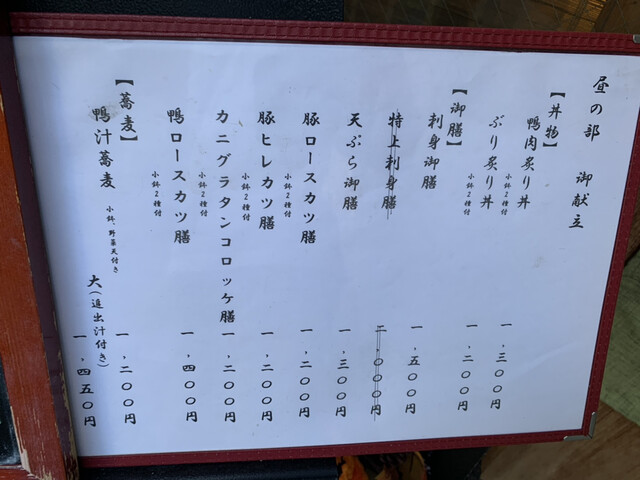 昼の部　御献立
【丼物】
鴨肉炙り丼　一，三〇〇円
小鉢２種付
ぶり炙り丼　一，二〇〇円
小鉢２種付
【御膳】
刺身御膳　一，五〇〇円
特上刺身膳　二，〇〇〇円
天ぷら御膳　一，三〇〇円
豚ロースカツ膳　一，二〇〇円
小鉢２種付
豚ヒレカツ膳　一，二〇〇円
小鉢２種付
カニグラタンコロッケ膳　一，二〇〇円
小鉢２種付
鴨ロースカツ膳　一，四〇〇円
小鉢２種付
【蕎麦】
鴨汁蕎麦　一，二〇〇円
小鉢、野菜天付き
大（追出汁付き）　一，四五〇円